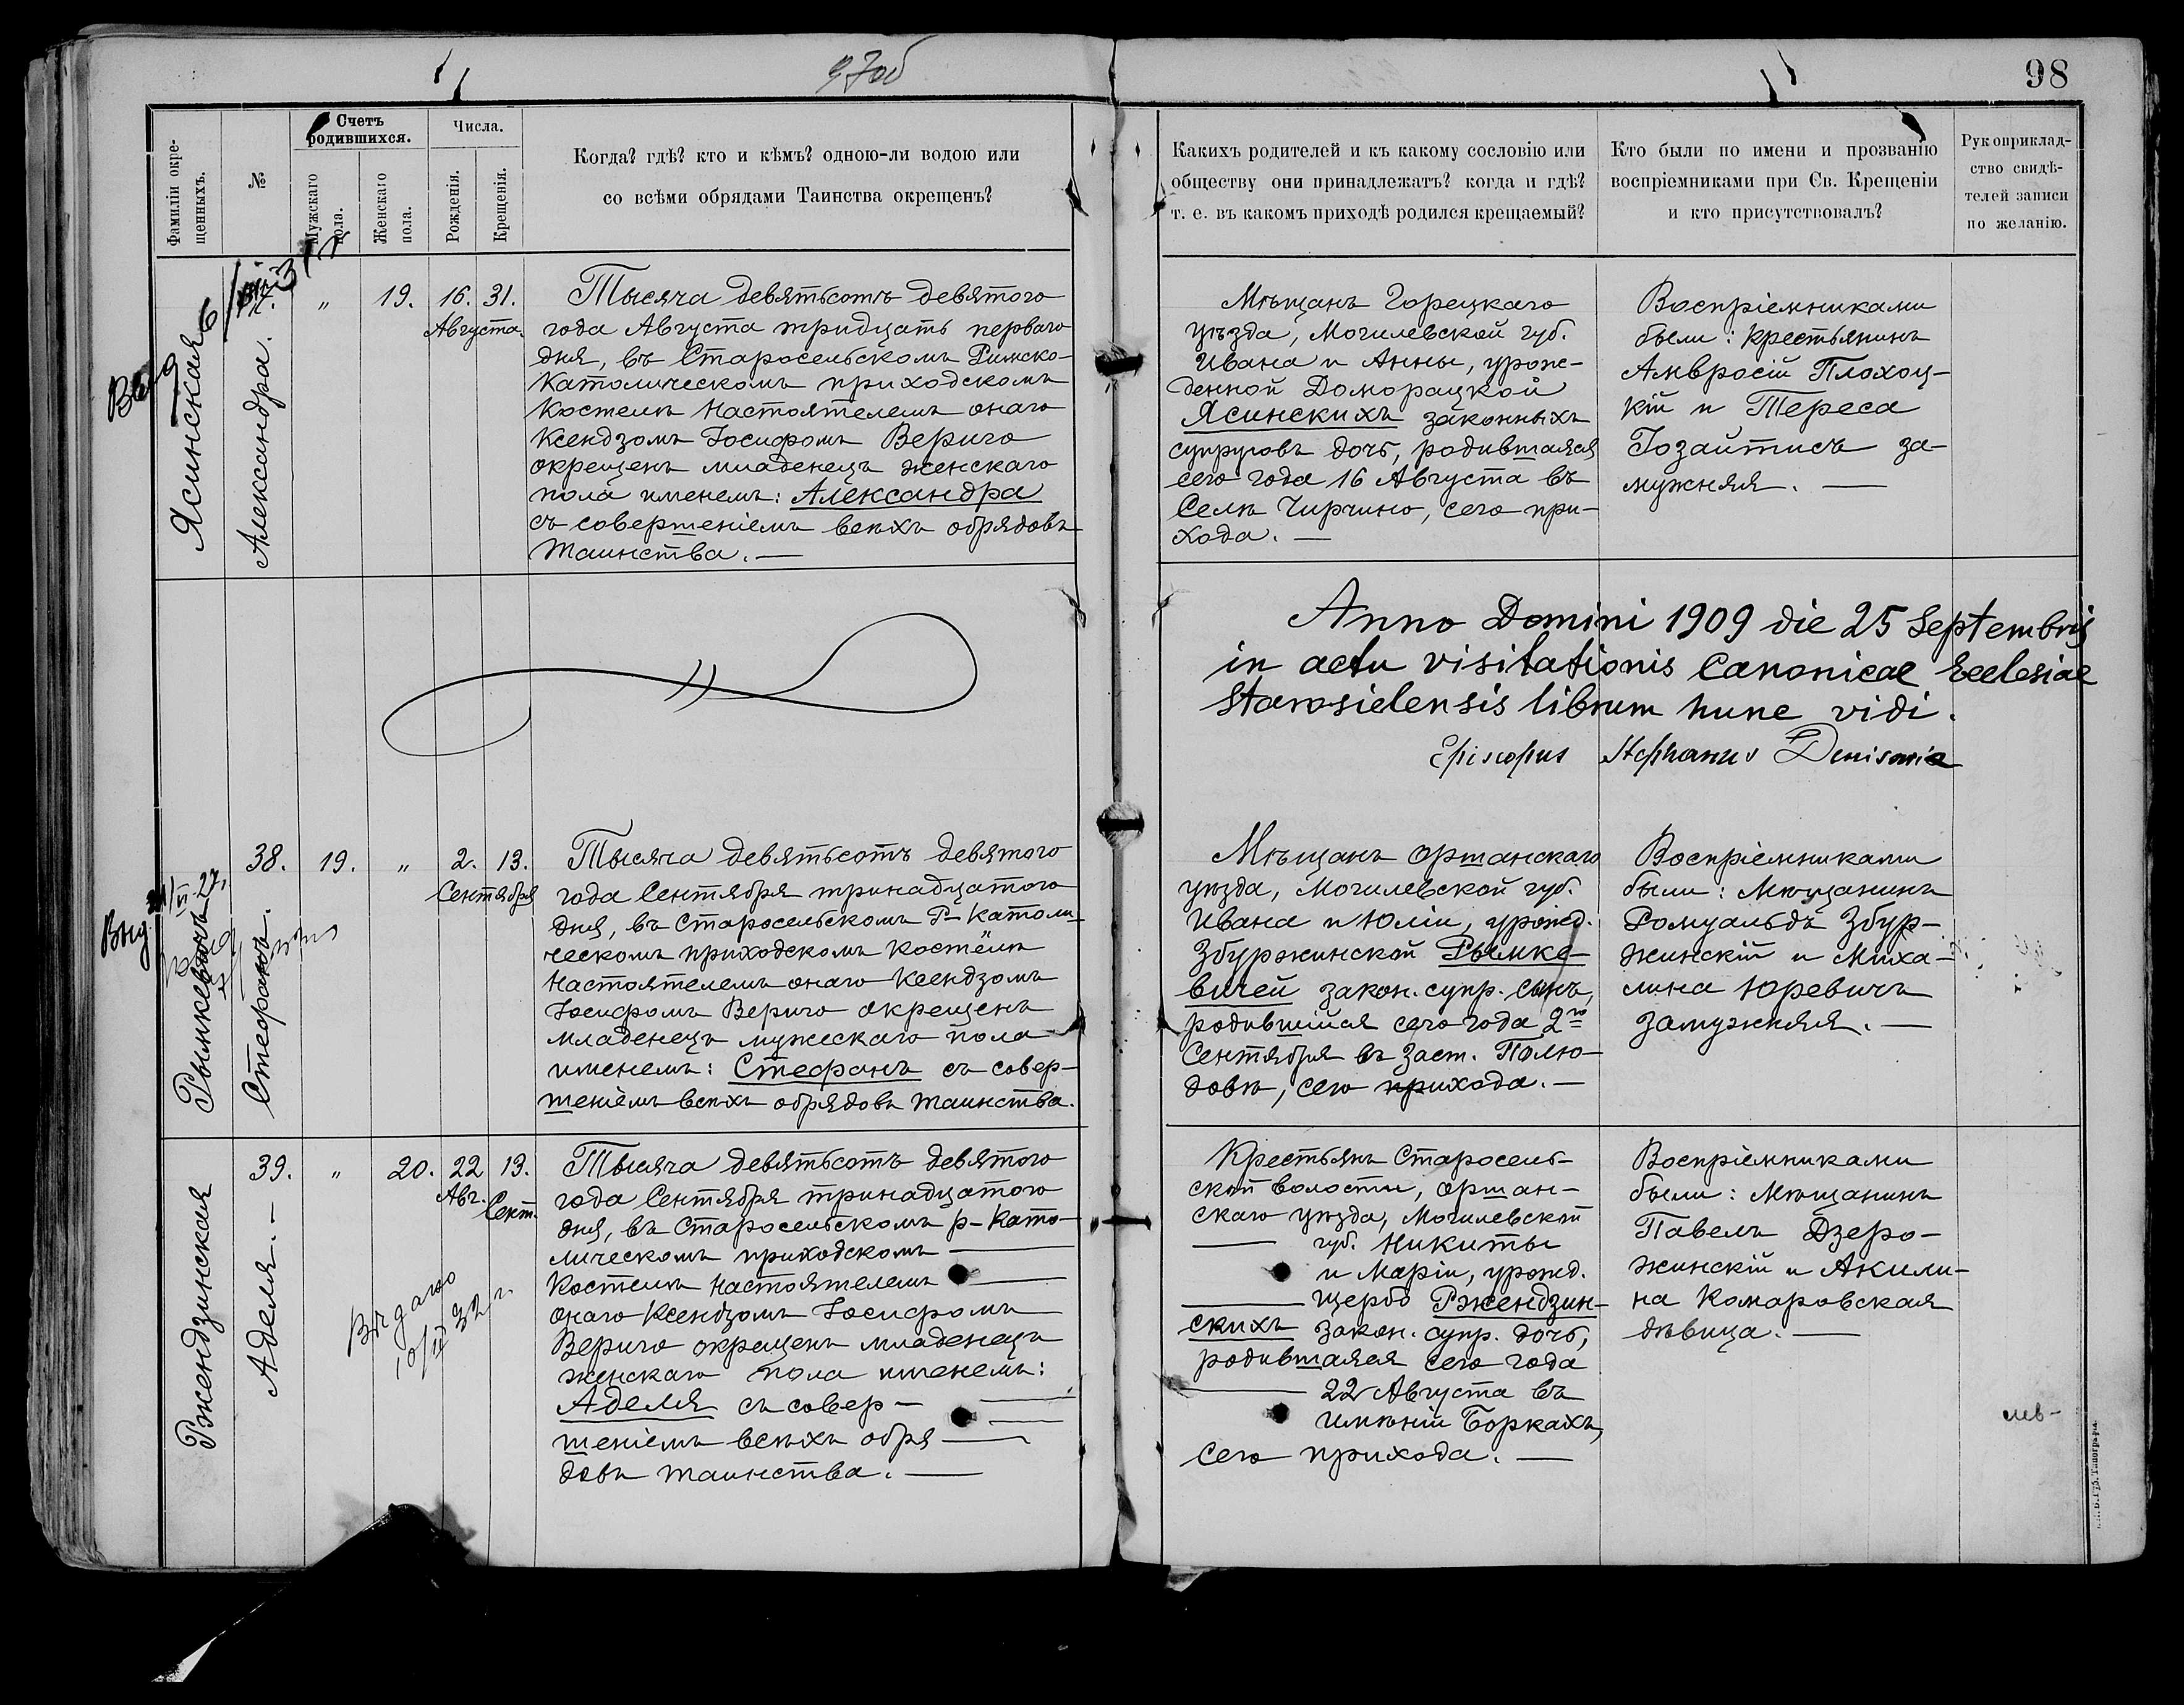 97об
98
Фамиліи окре-
щенныхъ.
№
Счетъ
родившихся.
Мужскаго
пола.
Женскаго
пола.
Числа.
Рожденія.
Крещенія.
Когда? гдѣ? кто и кѣмъ? одною-ли водою или
со всѣми обрядами Таинства окрещенъ?
Какихъ родителей и къ какому сословію или
обществу они принадлежатъ? когда и гдѣ?
т. е. въ какомъ приходѣ родился крещаемый?
Кто были по имени и прозванію
воспріемниками при Св. Крещеніи
и кто присутствовалъ?
Рукоприклад-
ство свидѣ-
телей записи
по желанію.
Ясинская
Александра.
"
19.
16.
31.
Августа.
Тысяча девятьсотъ девятого
года Августа тридцать перваго
дня, въ Старосельскомъ Римско-
Католическомъ приходскомъ
Костелѣ Настоятелемъ онаго
Ксендзомъ Іосифомъ Вериго
окрещенъ младенецъ женскаго
пола именемъ: Александра
съ совершеніемъ всѣхъ обрядовъ
Таинства. —
Мѣщанъ Горецкаго
уѣзда, Могилевской губ.
Ивана и Анны, урож-
денной Доморацкой
Ясинскихъ законныхъ
супруговъ дочь, родившаяся
сего года 16 Августа въ
Селѣ Чирчино, сего при-
хода. —
Воспріемниками
были: крестьянинъ
Амвросій Плохоц-
кій и Тереса
Гозайтисъ за-
мужняя. —
Anno Domini 1909 die 25 Septembris
in actu visitationis Canonicae Ecclesiae
Starosielensis librum hunc vidi.
Episcopus Stephanus Denisewicz
Выд
Рымкевичъ
38.
Стефанъ.
19.
"
2.
13.
Сентября
Тысяча девятьсотъ девятого
года Сентября тринадцатого
дня, въ Старосельскомъ Р-Католи-
ческомъ приходскомъ Костёлѣ
Настоятелемъ онаго Ксендзомъ
Іосифомъ Вериго окрещенъ
младенецъ мужескаго пола
именемъ: Стефанъ съ совер-
шеніемъ всѣхъ обрядовъ таинства.
Мѣщанъ Оршанскаго
уѣзда, Могилевской губ.
Ивана и Юліи, урожд.
Збуржинской Рымке-
вичей закон. супр. сынъ,
родившійся сего года 2го
Сентября въ заст. Полю-
довѣ, сего прихода. —
Воспріемниками
были: Мѣщанинъ
Ромуальдъ Збур-
жинскій и Миха-
лина Юревичъ
замужняя. —
Ржендзинская
39.
Аделя. —
"
20.
22
Авг.
13.
Сент.
Выдано
10/II 32 г.
Тысяча девятьсотъ девятого
года Сентября тринадцатого
дня, въ Старосельскомъ р-Като-
лическомъ приходскомъ —
Костелѣ Настоятелемъ —
онаго Ксендзомъ Іосифомъ
Вериго окрещенъ младенецъ
женскаго пола именемъ:
Аделя съ совер- —
шеніемъ всѣхъ обря —
довъ таинства. —
Крестьянъ Старосель-
ской волости, Оршан-
скаго уѣзда, Могилевской
— губ. Никиты
и Маріи, урожд.
— Щербо Ржендзин-
скихъ закон. супр. дочь,
родившаяся сего года
— 22 Августа въ
имѣніи Боркахъ,
сего прихода. —
Воспріемниками
были: Мѣщанинъ
Павелъ Дзеро-
жинскій и Акили-
на Комаровская
дѣвица. —